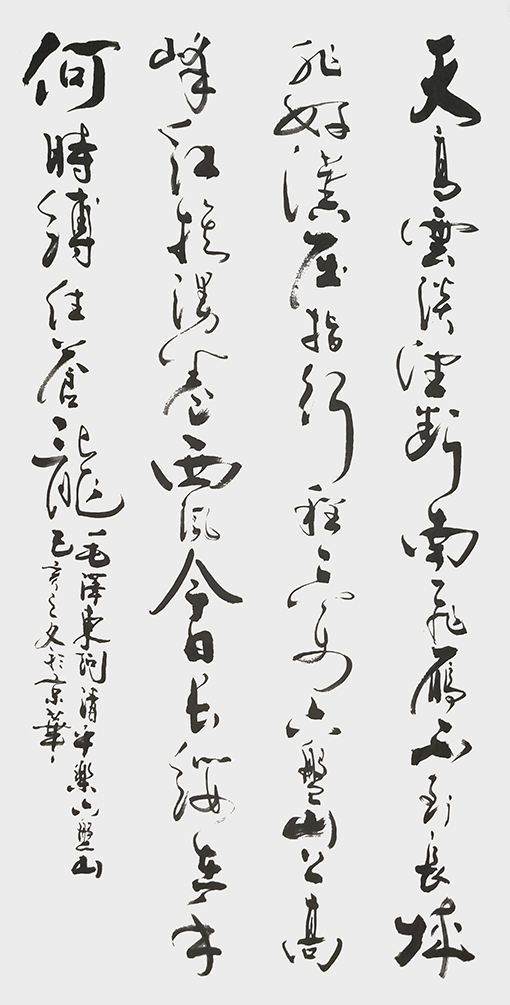 天高雲淡望斷南飛雁不到長城
非好漢屈指行程二萬六盤山上高
峰紅旗漫卷西風今日長纓在手
何時縛住蒼龍
毛澤東詞清平樂六盤山
己亥之文於京華